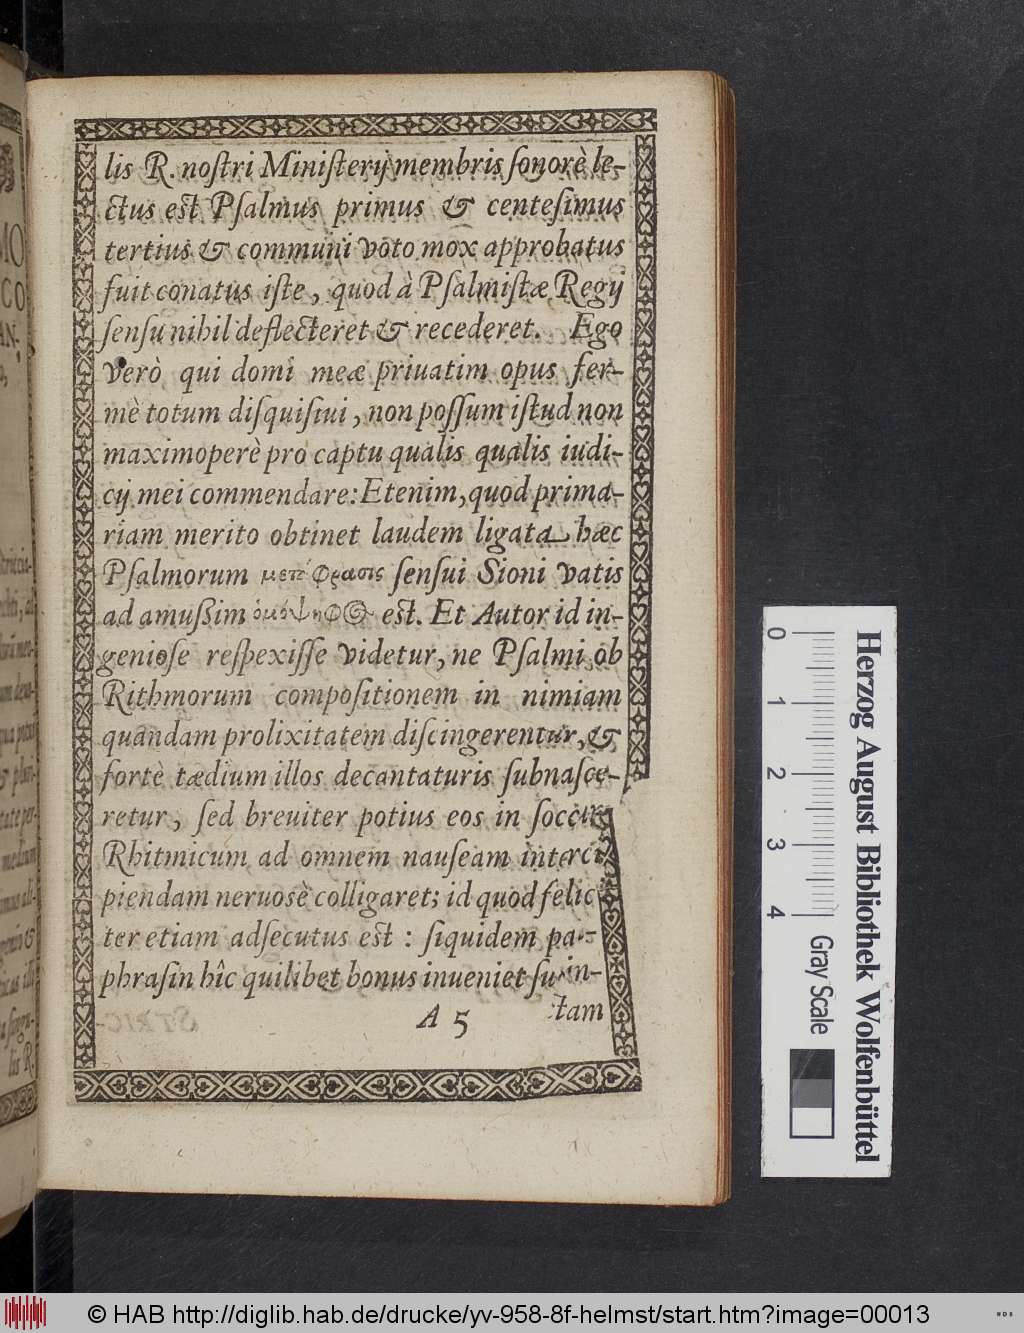 lis R. noſtri Miniſterij membris ſonorè le-
ctus est Pſalmus primus & centeſimus
tertius & communi voto mox approbatus
fuit conatus iſte, quod à Pſalmiſtæ Regij
ſenſu nihil deflecteret & recederet. Ego
verò qui domi meæ priuatim opus fer-
mè totum diſquiſiui, non poſſum iſtud non
maximoperè pro captu qualis qualis iudi-
cij mei commendare: Etenim, quod prima-
riam merito obtinet laudem ligata hæc
Pſalmorum ſenſui Sioni vatis
ad amuſsim est. Et Autor id in-
genioſe reſpexiſſe videtur, ne Pſalmi ob
Rithmorum compoſitionem in nimiam
quandam prolixitatem diſcingerentur, &
fortè tædium illos decantaturis ſubnaſce-
retur, ſed breuiter potius eos in
Rhitmicum ad omnem nauſeam interci-
piendam neruosè colligaret; id quod felic
ter etiam adſecutus est : ſiquidem
phraſin hîc quilibet bonus inueniet
A 5 tam
Herzog August Bibliothek Wolfenbüttel
0 1 2 3 4
Gray Scale
© HAB http://diglib.hab.de/drucke/yv-958-8f-helmst/start.htm?image=00013